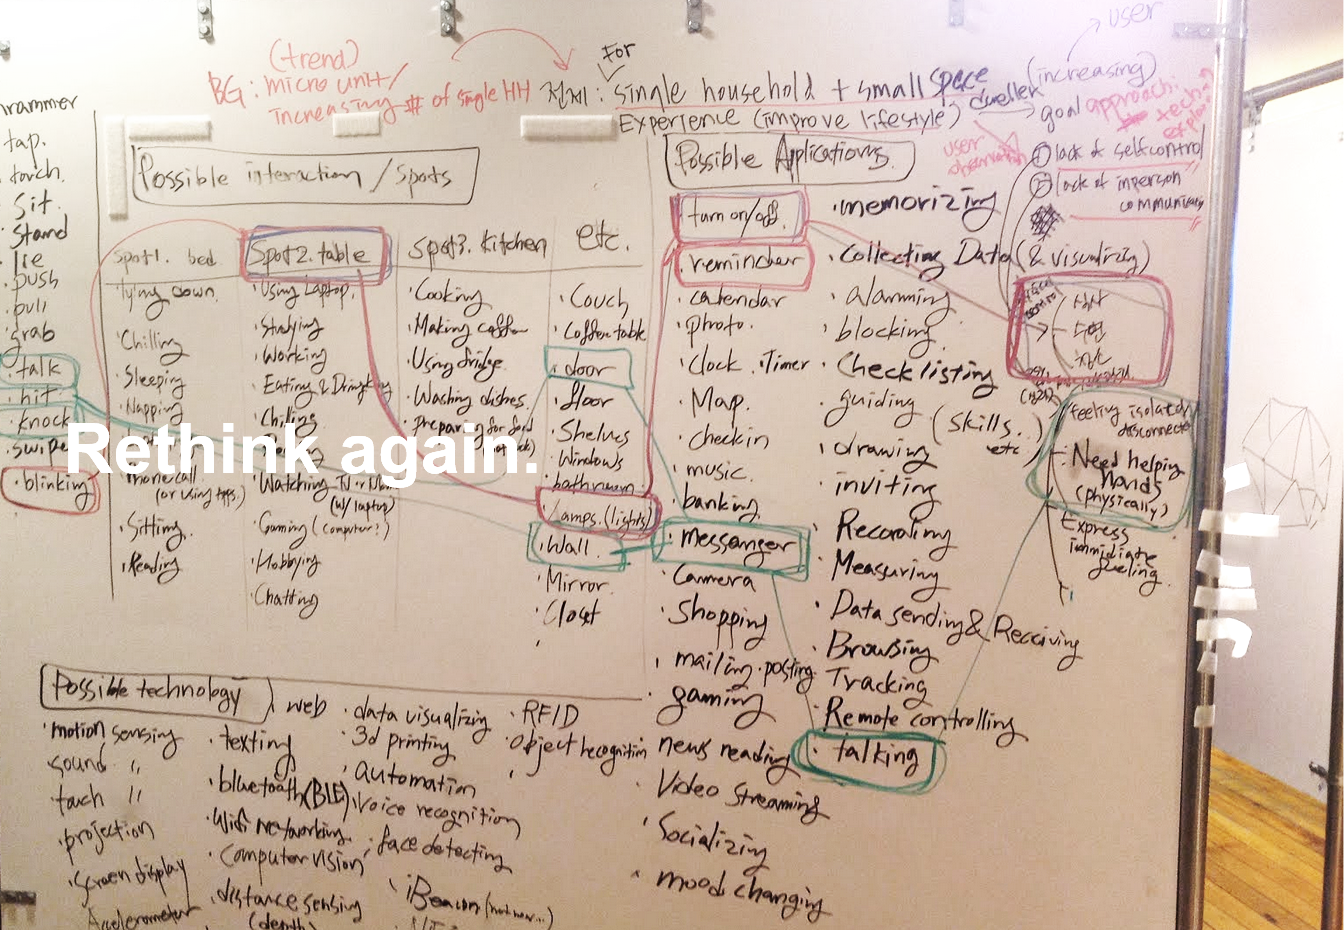 user
(trend)
BG: micro unit/
increasing # of single HH
For
: single household + small space dweller (increasing)
Experience (improve lifestyle) → goal
approach.
tech
user
① lack of selfcontrol
② lack of inperson
communicaty
rammer
tap.
touch.
Sit.
Stand
lie
push
pull
grab
talk
hit
knock
swipe
blinking
Possible interaction / Spots
spot1. bed
lying down.
Chilling
Sleeping
Napping
phone call
(or using apps.)
Sitting.
Reading
Spot2. table
Using Laptop.
Studying
Working
Eating & Drinking
Chilling
Watching TV or
(w/ laptop)
Gaming (computer?)
Hobbying
Chatting
Spot3. Kitchen
Cooking
Making coffee
Using fridge.
Washing dishes.
preparing for food
etc.
Couch
Coffee table
door
floor
Shelves
Windows
bathroom
Lamps. (lights)
Wall.
Mirror.
Closet
Rethink again.
Possible Applications.
turn on/off.
reminder
calendar
photo.
Clock. Timer
Map.
checkin
music.
banking.
messanger
Camera
Shopping
mailing. posting
gaming
news reading
Video streaming
Socializing
mood changing
memorizing
Collecting Data (& visualizing)
alarming
blocking.
Checklisting
guiding (skills..
etc)
drawing
inviting
Recording
Measuring
Data sending & Receiving
Browsing
Tracking
Remote controlling
talking
feeling isolated
disconnected
Need helping
Hands
(physically)
Express
immidiate
feeling.
Possible technology
motion sensing
sound "
touch "
projection
screen display
Accelerometer
web
texting
bluetooth (BLE)
Wifi networking
Computer vision
distance sensing
(depth)
data visualizing
3d printing
automation
Voice recognition
face detecting
iBeacon
RFID
Object recognition